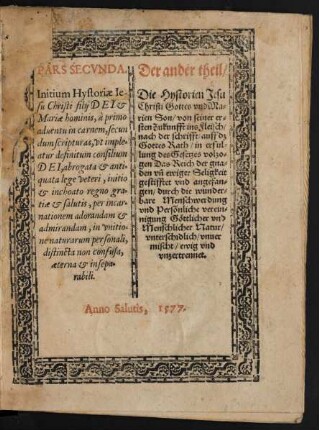 PARS SECVNDA.
Initium Hystoriæ Ie-
su Christi filij DEI &
Mariæ hominis, à primo
aduentu in carnem, secun
dum scripturas, vt imple-
atur definitum consilium
DEI, abrogata & anti-
quata lege veteri, initio
& inchoato regno gra-
tiæ & salutis, per incar-
nationem adorandam &
admirandam, in vnitio-
ne naturarum personali,
distincta non confusa,
æterna & insepa-
rabili.
Der ander theil/
Die Hystorien Jesu
Christi Gottes vnd Ma-
rien Son/ von seiner er-
sten zukunfft ins fleisch/
nach der schrifft/ auß dz
Gottes Rath/ in erful-
lung des Gesetzes volzo-
gen Das Reich der gna-
den vñ ewiger Seligkeit
gestifftet vnd angefan-
gen/ durch die wunder-
bare Menschwerdung
vnd Persönliche verei-
nigung Göttlicher vnd
Menschlicher Natur/
vnterschidlich/ vnuer
mischt/ ewig vnd
vnzertrennet.
Anno Salutis, 1577.